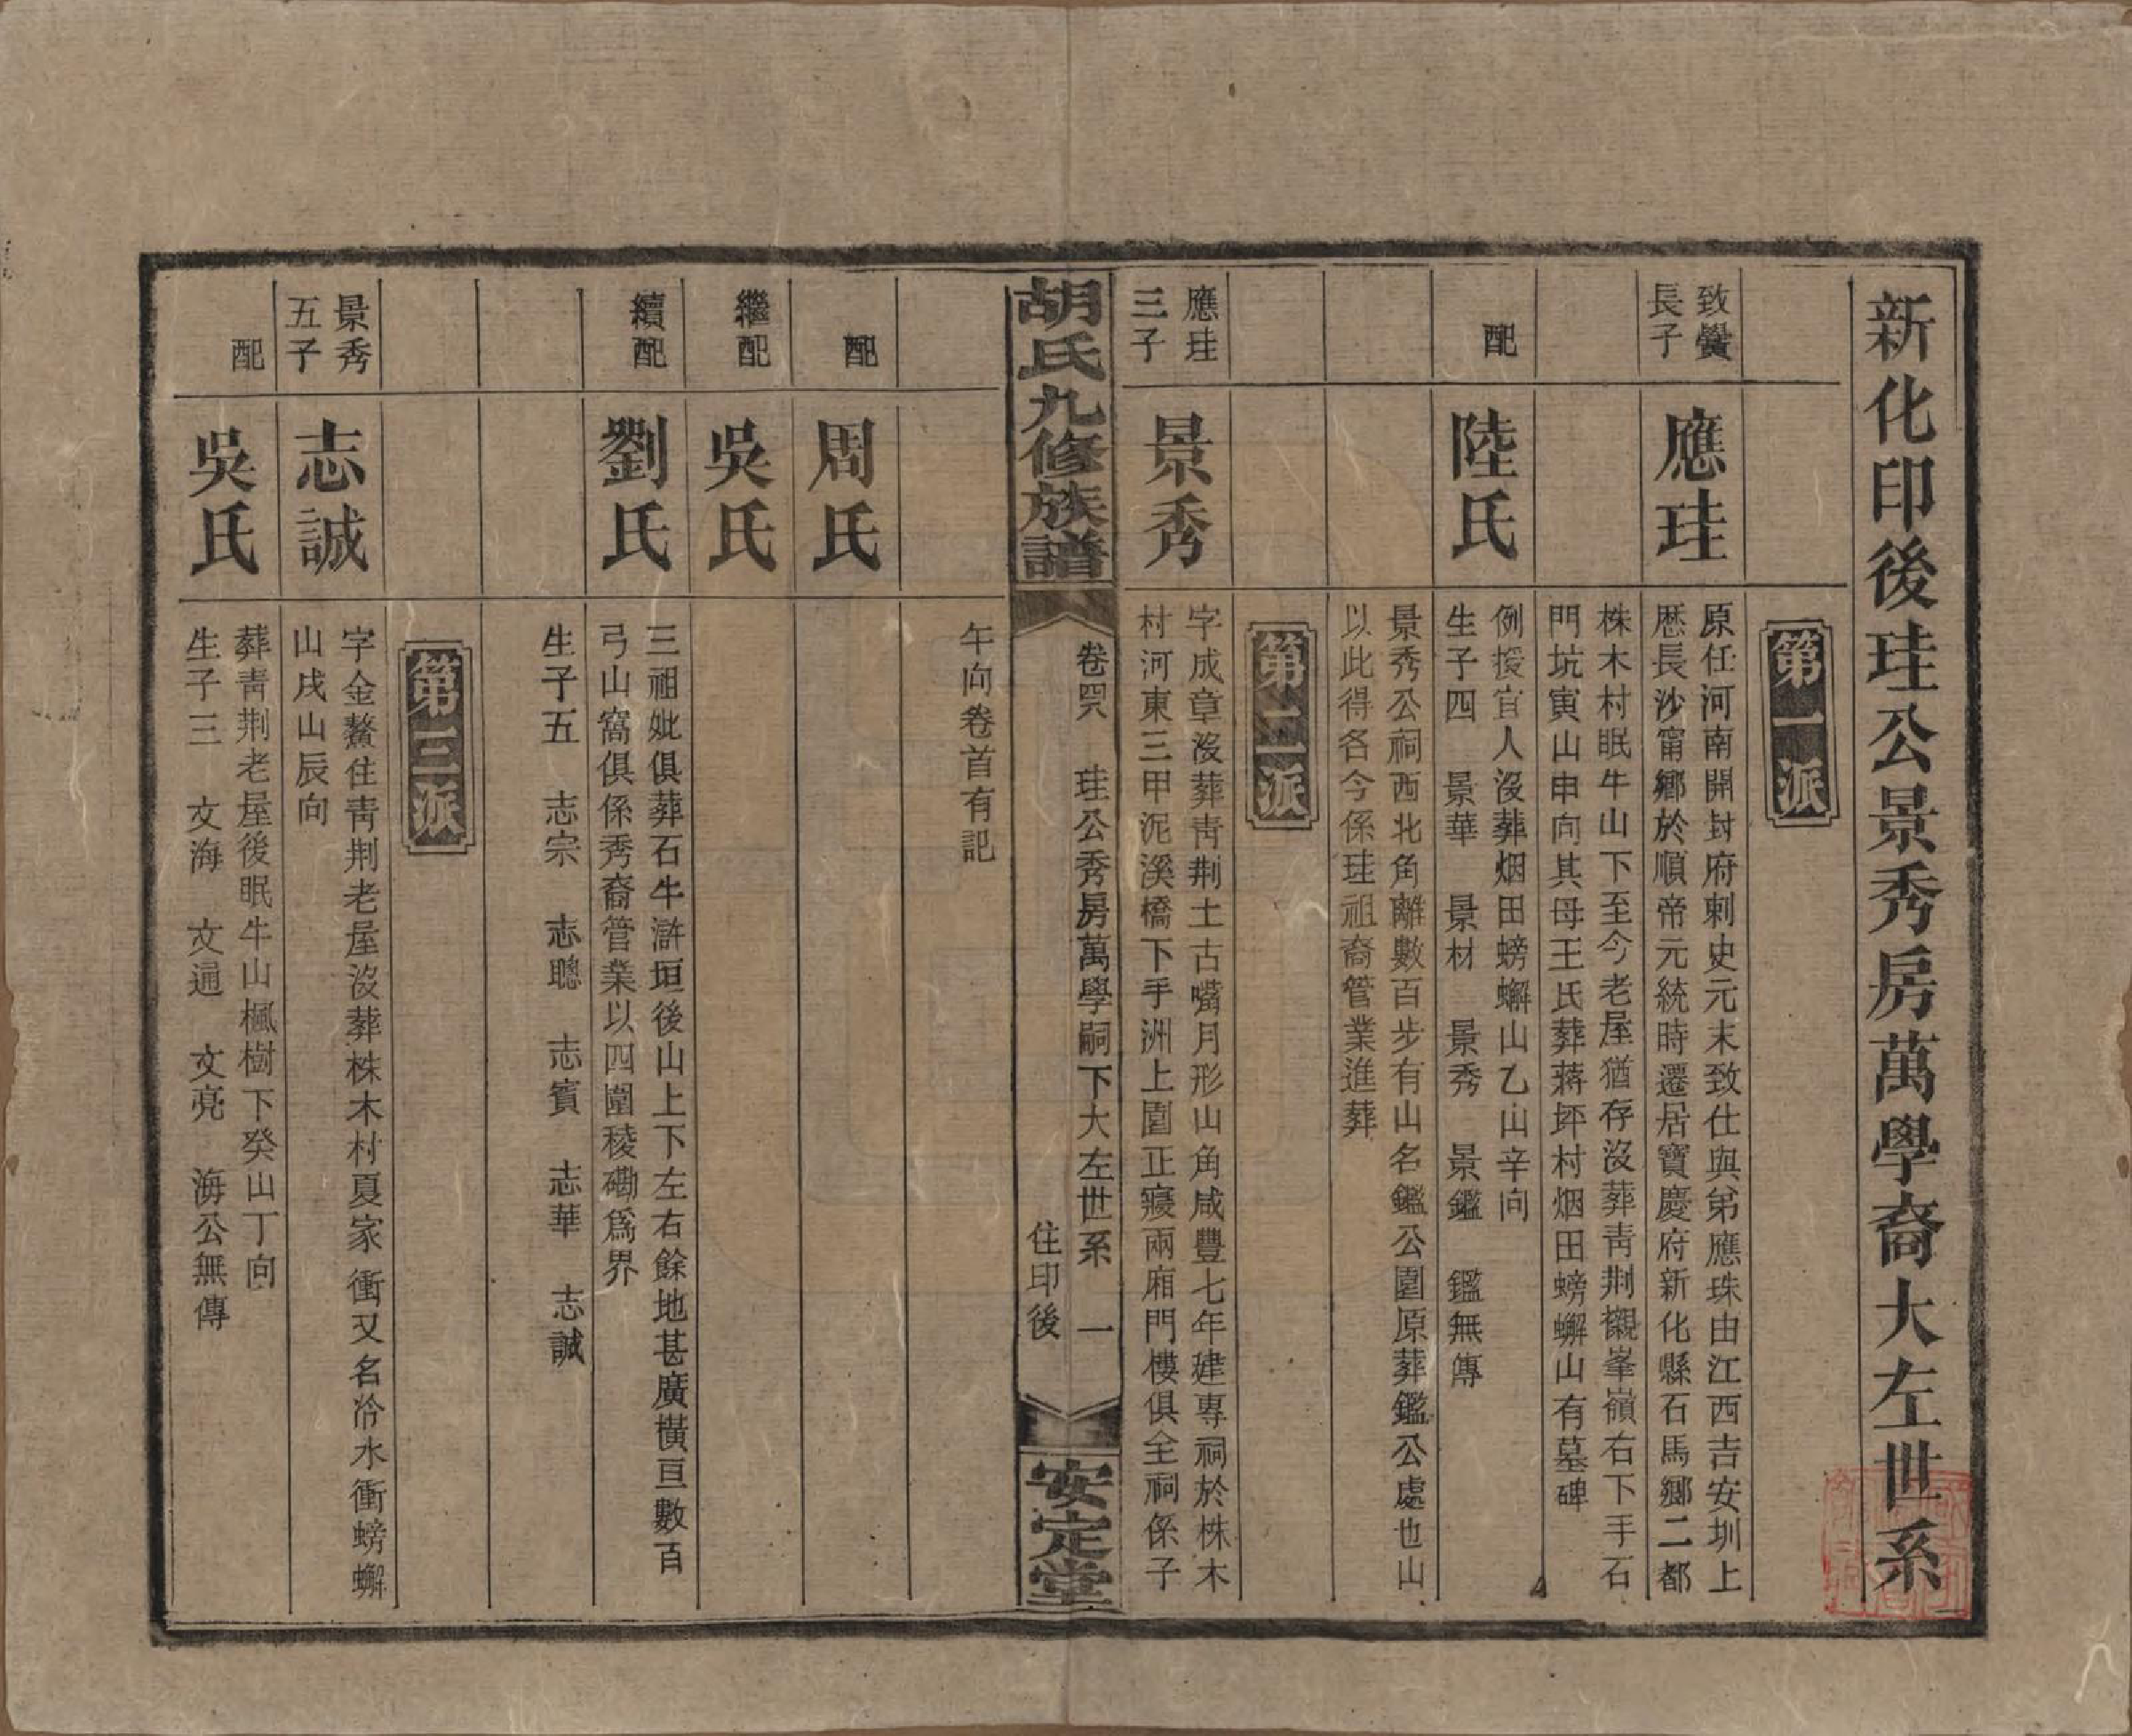 新化印後珪公景秀房萬學裔大左世系
第一派
致黌
長子
應珪
原任河南開封府刺史元末致仕與弟應珠由江西吉安圳上
歷長沙甯鄉於順帝元統時遷居寶慶府新化縣石馬鄉二都
株木村眠牛山下至今老屋猶存沒葬青荆襯峯嶺右下手石
門坑寅山申向其母王氏葬蔣坪村烟田螃蠏山有墓碑
配
陸氏
例授宜人沒葬烟田螃蠏山乙山辛向
生子四 景華 景材 景秀 景鑑 鑑無傳
景秀公祠西北角離數百步有山名鑑公園原葬鑑公處也山
以此得各今係珪祖裔管業進葬
第二派
應珪
三子
景秀
字成章沒葬青荆土古嘴月形山角咸豐七年建專祠於株木
村河東三甲泥溪橋下手洲上園正寢兩廂門樓俱全祠係子
胡氏九修族譜
卷四八 珪公秀房萬學嗣下大左世系 一
住印後
安定堂
午向卷首有記
配
周氏
繼配
吳氏
續配
劉氏
三祖妣俱葬石牛滸垣後山上下左右餘地甚廣橫亘數百
弓山窩俱係秀裔管業以四圍稜磡爲界
生子五 志宗 志聰 志賓 志華 志誠
第三派
景秀
五子
志誠
字金鰲住青荆老屋沒葬株木村夏家衝又名冷水衝螃蠏
山戌山辰向
配
吳氏
葬青荆老屋後眠牛山楓樹下癸山丁向
生子三 文海 文通 文亮 海公無傳